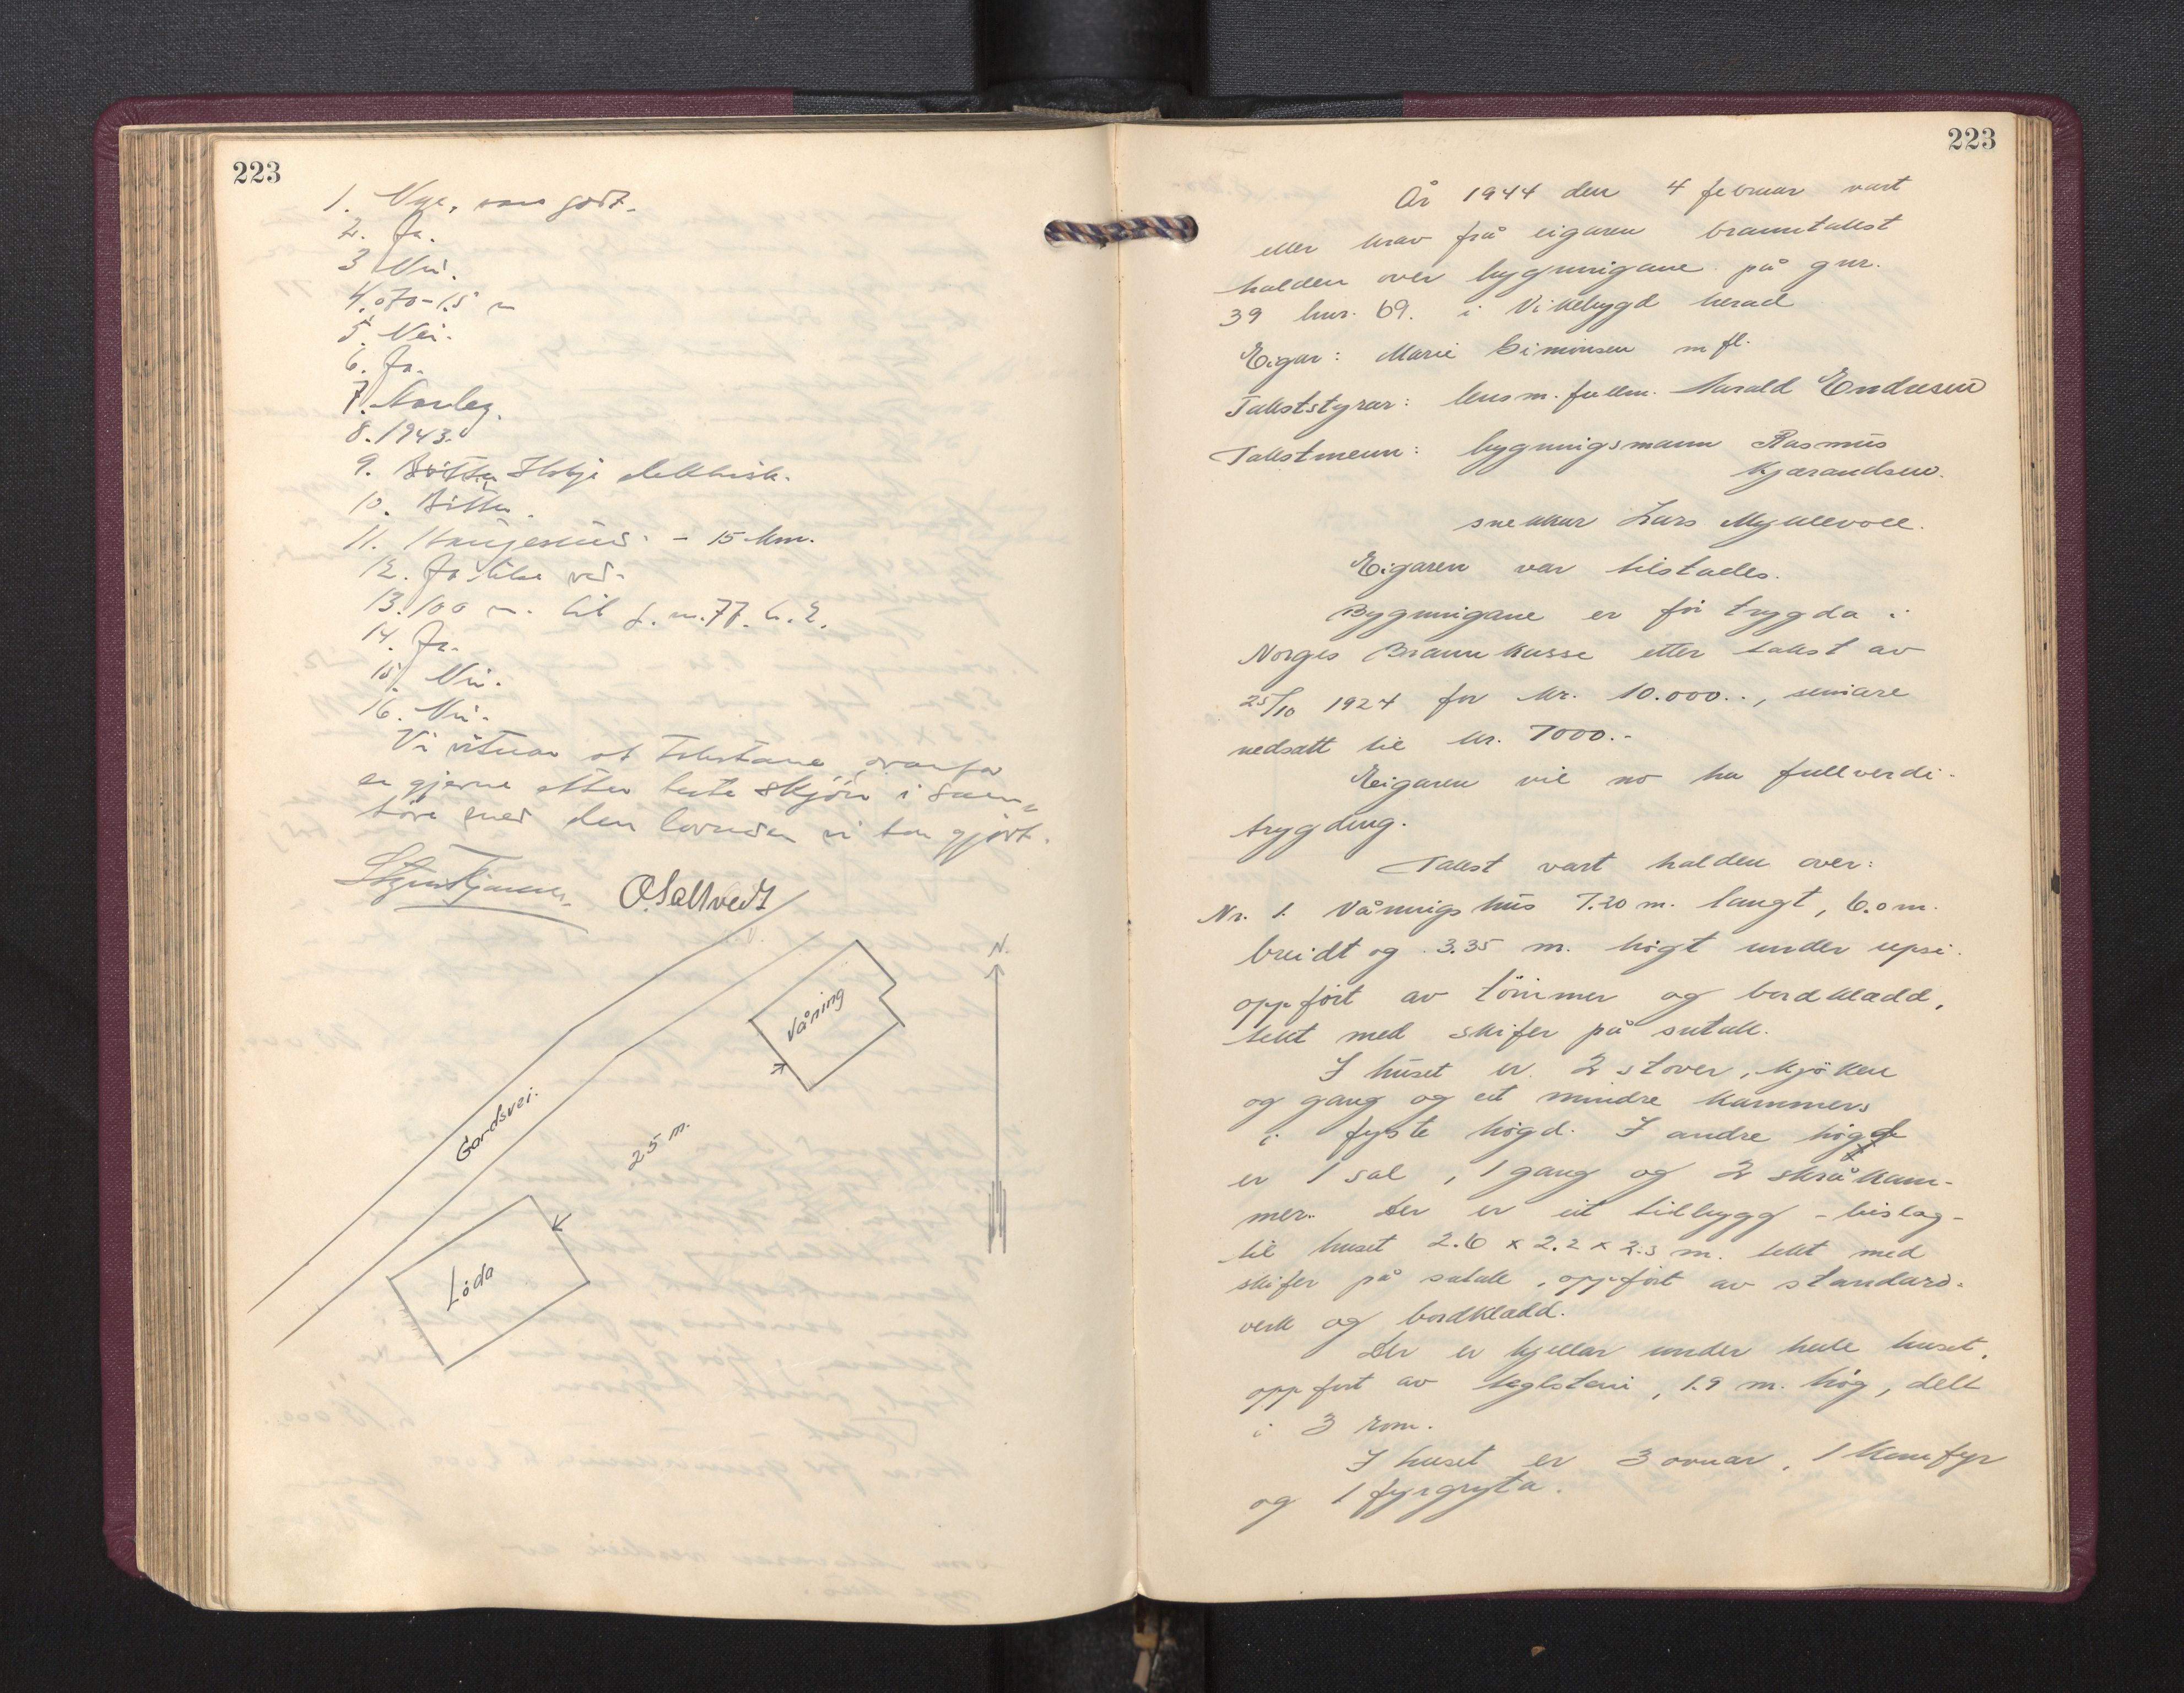 223
1. Nye, vare godt.
2. Ja.
3 Nei.
4. 070-1.5 m
5. Nei.
6. Ja.
7. Narleg.
8. 1943.
9. elektrisk.
10. Bøtter.
11. Haugesund. - 15 km.
12. Ja ved.
13. 100 m. til g. nr. 77. b. 2.
14. Ja.
15. Nei.
16. Nei.
Vi vitnar at Takstane ovanfor
er gjerne etter beste skjön i sam„
höve med den lovnden vi har gjort.
O. Saltvedt
N.
Våning
Gardsvei.
25 m.
Löda
223
År 1944 den 4 februar vart
etter krav frå eigaren branntakst
halden over bygningane på gnr.
39 bnr. 69. i Vikebygd herad
Eigar: Marie Simonsen m fl.
Takststyrar: lensm. fullm. Harald Endresen
Takstmenn: bygningsmann Rasmus
Kjærandsen.
snekkar Lars Myklevoll.
Eigaren var tilstades.
Bygningane er før trygda i
Norges Brannkasse etter takst av
25/10 1924 for kr. 10.000.., seinare
nedsatt til kr. 7000.-
Eigaren vil no ha fullverdi-
trygding.
Takst vart halden over:
Nr. 1. Våningshus 7.20 m. langt, 6.0 m.
breidt og 3.35 m. högt under upsi.
oppfört av tömmer og bordkledd,
tekt med skifer på sutak.
I huset er 2 stover, kjöken
og gang og eit mindre kammers
i fyste högd. I andre högd
er 1 sal, 1 gang og 2 skråkam-
mer. Der er eit tilbygg - bislag -
til huset 2.6 x 2.2 x 2.3 m. tekt med
skifer på sutak, oppfört av standard-
verk og bordkledd.
Der er kjellar under hele huset,
oppfört av teglstein, 1.9 m. hög, delt
i 3 rom.
I huset er 3 ovnar, 1 komfyr
og 1 fyrgryta.